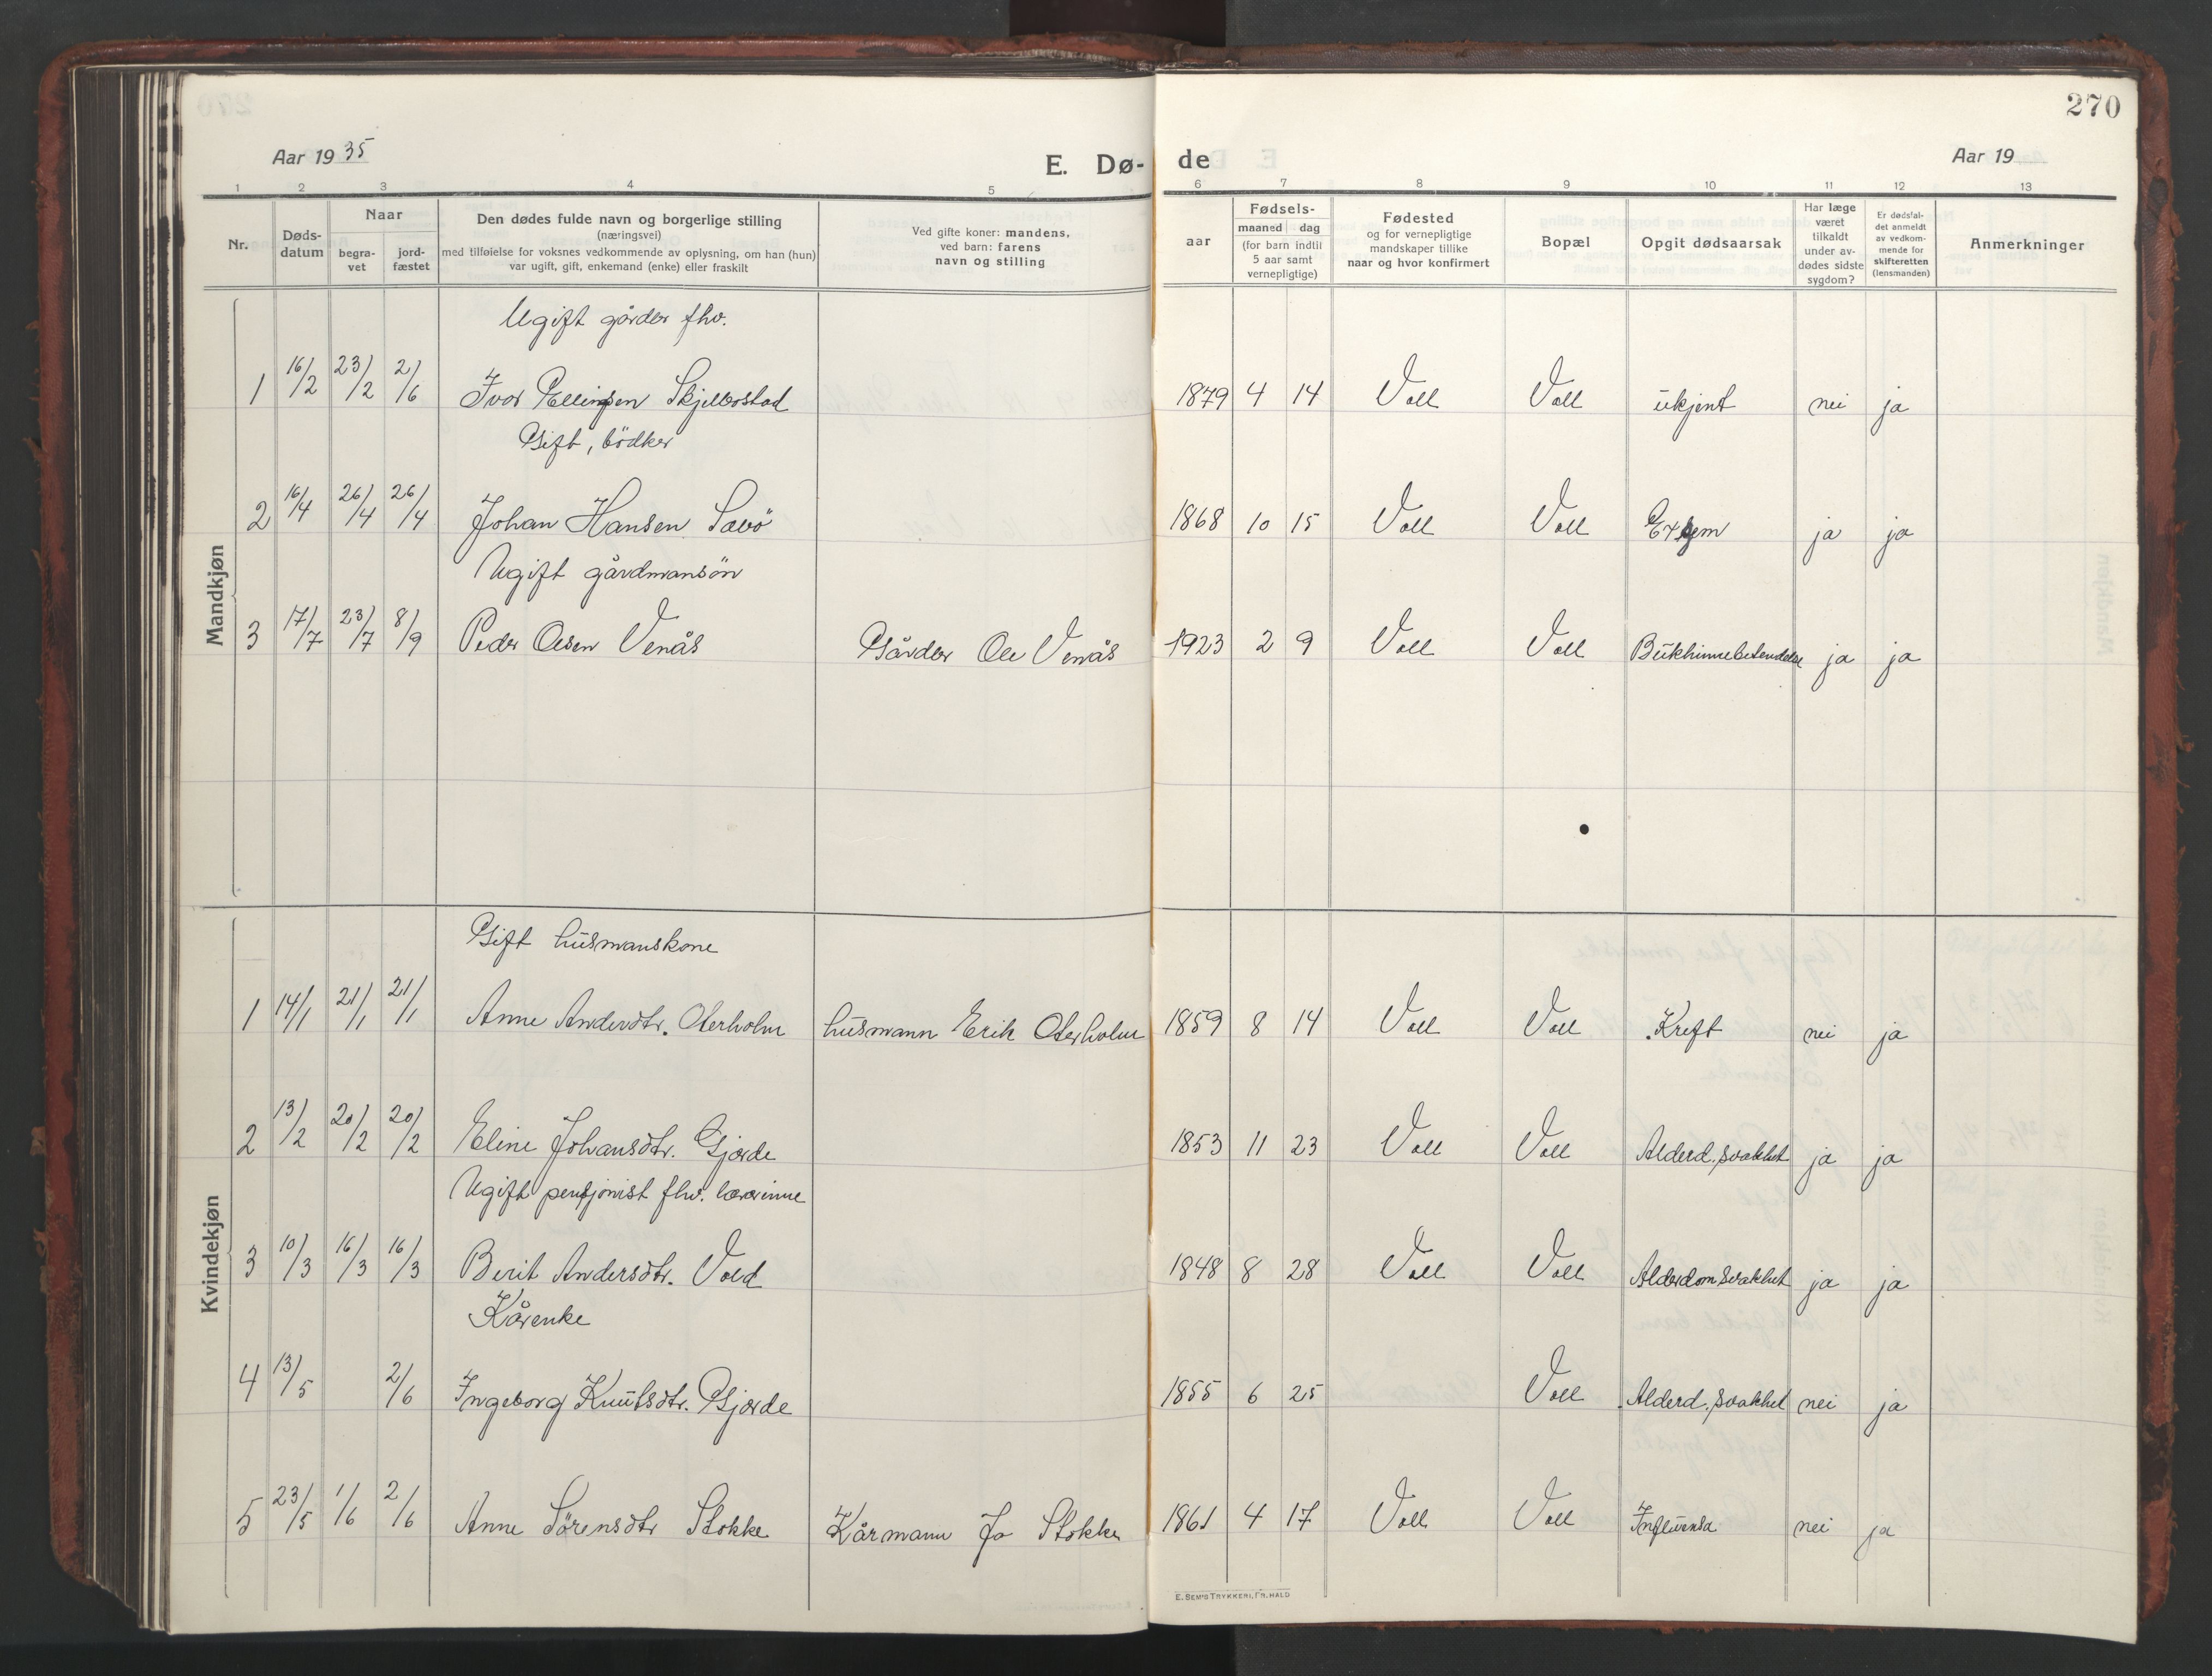 270
Aar 1935
E. Dø-
de
Aar 19
1 2 3 4 5 6 7 8 9 10 11 12 13
Nr.
Døds-
datum
Naar
begra-
vet
jord-
fæstet
Den dødes fulde navn og borgerlige stilling
(næringsvei)
med tilføielse for voksnes vedkommende av oplysning, om han (hun)
var ugift, gift, enkemand (enke) eller fraskilt
Ved gifte koner: mandens,
ved barn: farens
navn og stilling
aar
Fødsels-
maaned dag
(for barn indtil
5 aar samt
vernepligtige)
Fødested
og for vernepligtige
mandskaper tillike
naar og hvor konfirmert
Bopæl
Opgit dødsaarsak
Har læge
været
tilkaldt
under av-
dødes sidste
sygdom?
Er dødsfal-
det anmeldt
av vedkom-
mende for
skifteretten
(lensmanden)
Anmerkninger
Mandkjøn
Ugift gårdbr fhv.
1 16/2 23/2 2/6 Ivar Ellingsen Skjelbostad 1879 4 14 Voll Voll ukjent nei ja
Gift, bödker
2 16/4 26/4 26/4 Johan Hansen Sævö 1868 10 15 Voll Voll ja ja
Ugift gårdmansön
3 17/7 23/7 8/9 Peder Olsen Venås Gårdbr Ole Venås 1923 2 9 Voll Voll Bukhinnebetendelse ja ja
Kvindekjøn
Gift husmanskone
1 14/1 21/1 21/1 Anne Andersdtr. Oterholm husmann Erik Oterholm 1859 8 14 Voll Voll Kreft nei ja
2 13/2 20/2 20/2 Eline Johansdtr. Gjerde 1853 11 23 Voll Voll Alderd.svakhet ja ja
Ugift pensjonist fhv. lærerinne
3 10/3 16/3 16/3 Berit Andersdtr. Vold 1848 8 28 Voll Voll Alderdomsvakhet ja ja
Kårenke
4 13/5 2/6 Ingeborg Knutsdtr. Gjerde 1855 6 25 Voll Alderd.svakhet nei ja
5 23/5 1/6 2/6 Anne Sörensdtr Stokke Kårmann Jo Stokke 1861 4 17 Voll Voll Influensa nei ja
E. SEM'S TRYKKERI, FR.HALD